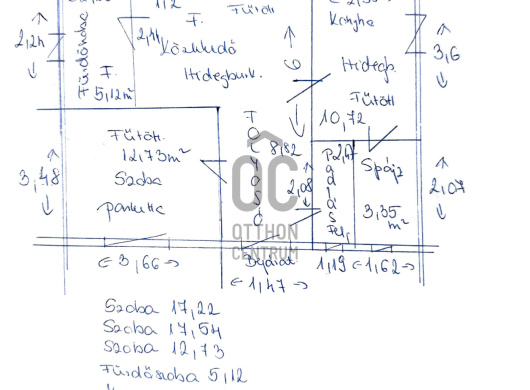 1,2
F.
Fürdő
Konyha
2,24
Fürdőszoba
2,44
Közlekedő
Hidegburk.
6
Hidegb.
3,6
F.
5,12m²
Fűtött
10,72
Fűtött
12,73m²
Szoba
parketta
3,48
TOLYOSÓ
8,82
2,08
Padlás
Fel.
2,47
Spájz
3,35
m²
2,07
OC
OTTHON
CENTRUM
← 3,66 →
Bejárat
← 1,47 →
1,19
← 1,62 →
Szoba 17,22
Szoba 17,54
Szoba 12,73
Fürdőszoba 5,12